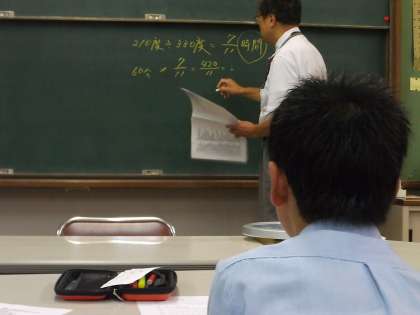 210度÷330度=7/11(時間)
60分×7/11=420/11=